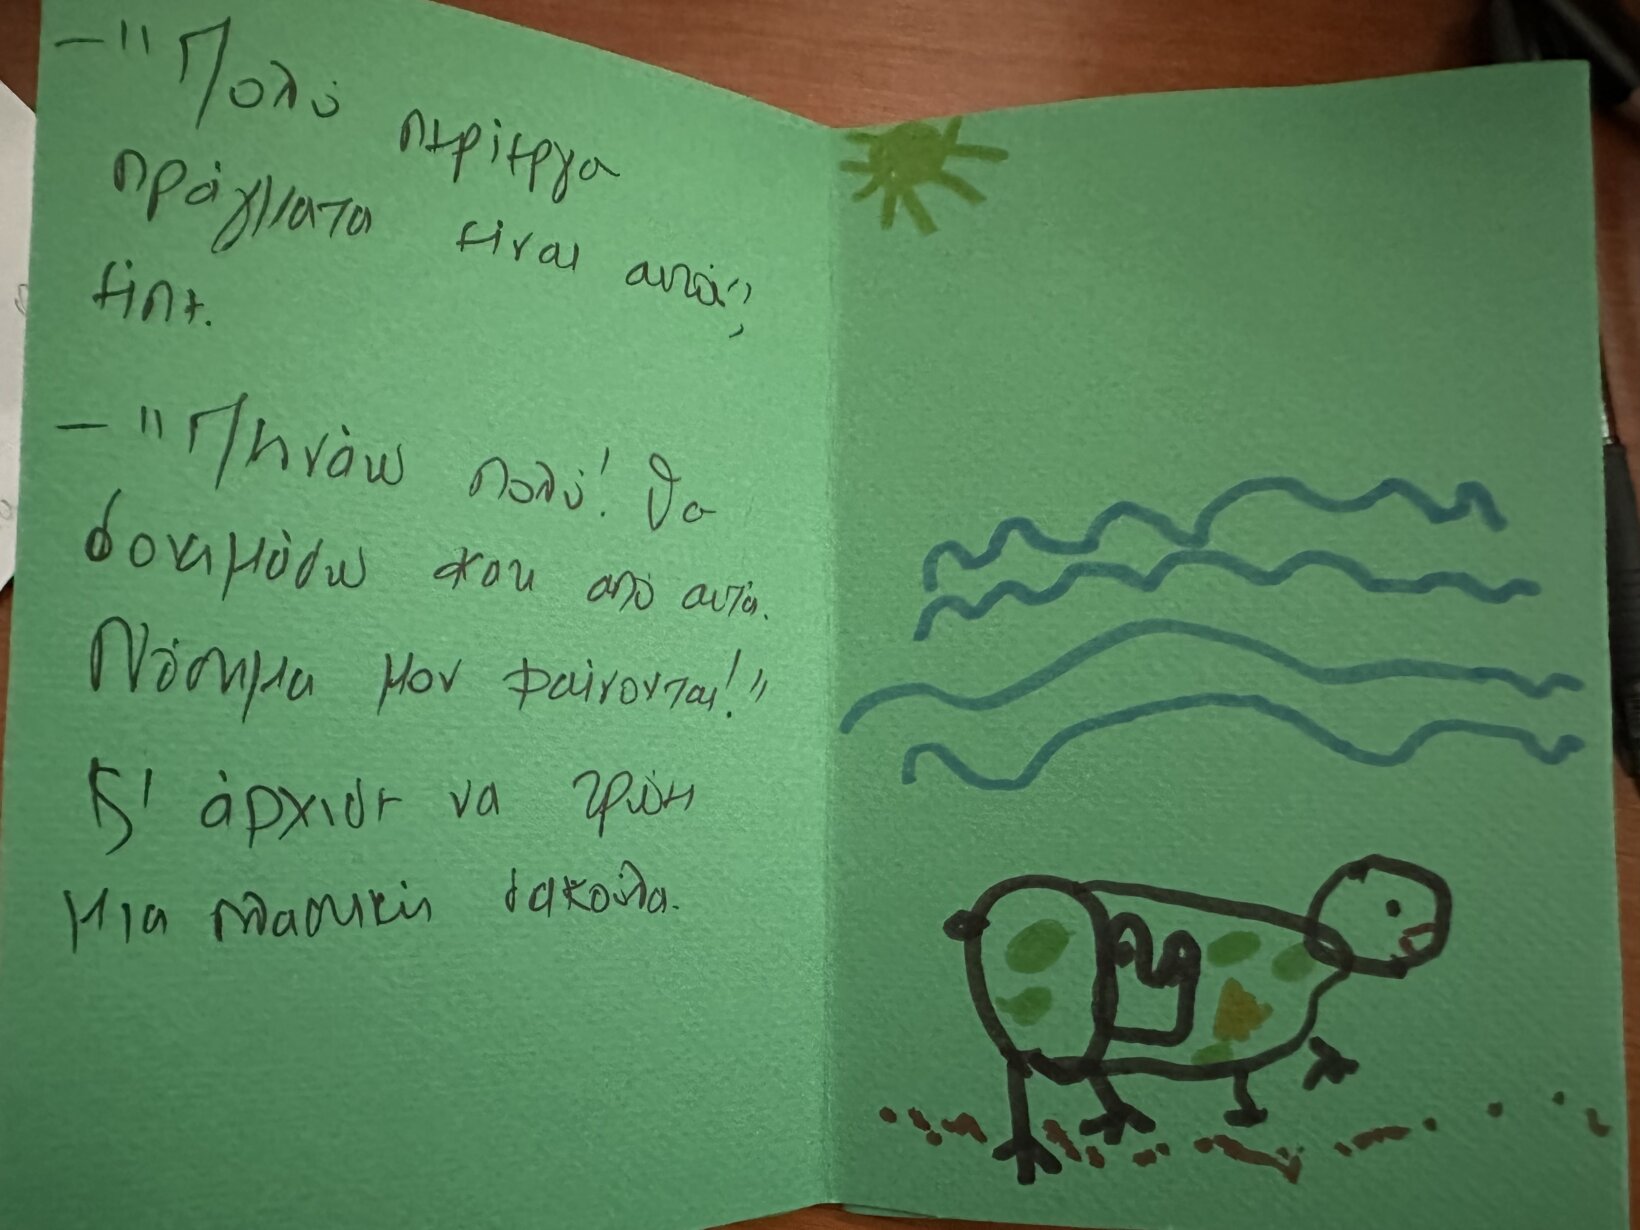 –"Πολύ περίεργα
πράγματα είναι αυτά";
είπε.
–"Πεινάω πολύ! Θα
δοκιμάσω και από αυτά.
Νόστιμα μου φαίνονται!"
Κι άρχισε να τρώει
μια πλαστική σακούλα.